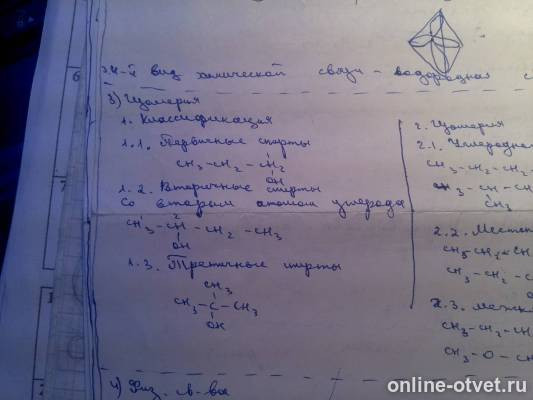 6
4-й вид химической связи - водородная с
3) Изомерия
1. Классификация
1.1. Первичные спирты
CH3-CH2-CH2
OH
7
1.2. Вторичные спирты
Со вторым атомом углерода
1 2
CH3-CH-CH2-CH3
OH
1.3. Третичные спирты
CH3
CH3-C-CH3
OH
4) Физ. св-ва
2. Изомерия
2.1. Углеродно
CH3-CH2-CH2-
CH3-CH-CH
CH3
2.2. Местопо
CH3-CH2-CH
CH3-CH2-C
2.3. Межкл
CH3-CH2-CH
CH3-O-CH
online-otvet.ru